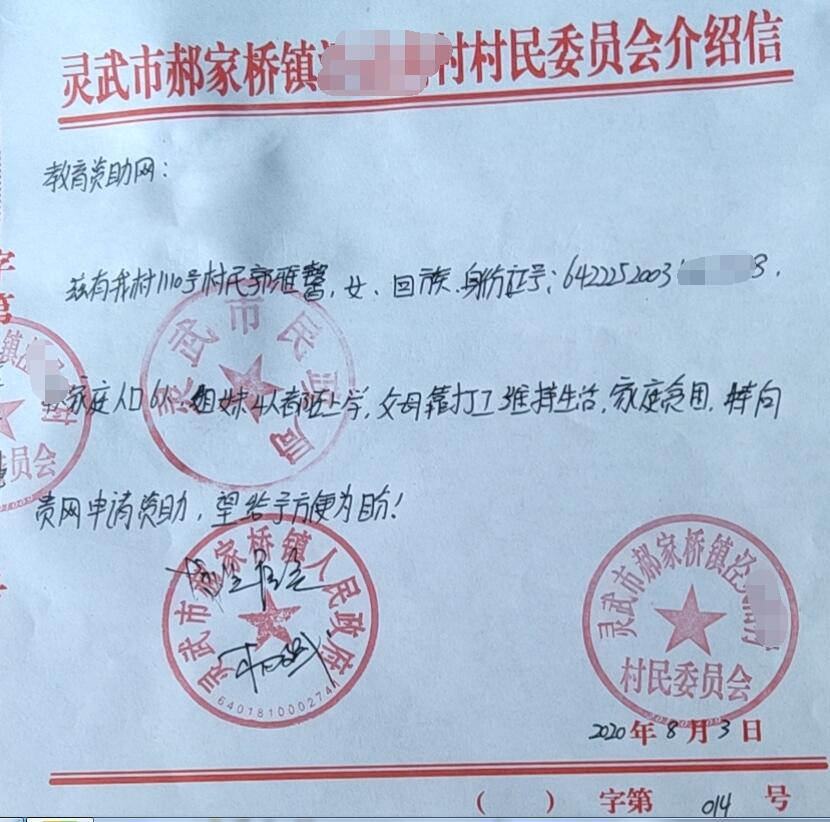 灵武市郝家桥镇 村村民委员会介绍信
教育资助网：
兹有我村1110号村民郭雅馨，女、回族、身份证号：6422252003 3，
家庭人口6人，姐妹4人都还上学，父母靠打工维持生活，家庭贫困，特向
贵网申请资助，望给予方便为盼！
灵武市民政局
镇
村
员会
字
第
灵武市郝家桥镇人民政府
6401810002741
灵武市郝家桥镇泾
村民委员会
2020年8月3日
( ) 字第 014 号